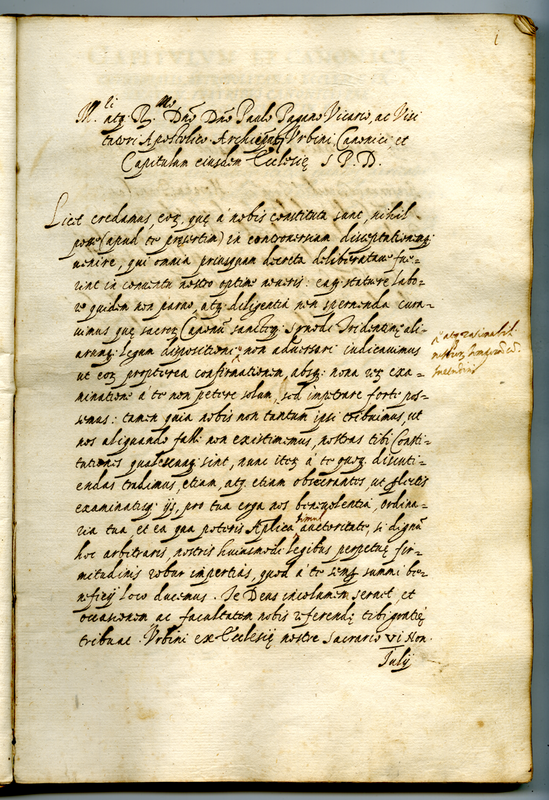 M.li atq R.mo Dno Dno Paulo Pagano Vicario, ac Visi
tatori Apostolico Archiepat. Urbini, Canonici et
Capitulum eiusdem Ecclesię S P. D.
Licet credamus eoꝝ, quę á nobis constituta sunt, nihil
posse (apud te pręsertim) in controversiam disceptationemq
venire, qui omnia priusquam decreta deliberataue fue-
rint in conventu nostro optime noveris: eaq statuere labo-
re quidem non parvo, atq diligentia non spernenda cura-
vimus quę sacroꝝ Canonū sanctęq synodi Tridentinę ali-
arumq legum dispositioni, non adversari iudicavimus
ut eoꝝ propterea confirmationem, absq nova rei exa-
minatione á te non petere solum, sed impetrare forte pos-
semus: tamen quia nobis non tantum ipsi tribuimus, ut
nos aliquando falli non existimemus, nostras tibi Consti-
tutiones qualescunq sint, nunc iteꝝ á te quoq discuti-
endas tradimus, etiam, atq etiam obsecrantes, ut
examinatisq ijs, pro tua erga nos benevolentia, ordina-
ria tua, et ea qua poteris Aplica simul auctoritate, si dignū
hoc arbitraris, nostris huiusmodi legibus perpetuę fir-
mitudinis robur impertias, quod á te semp summi be-
neficij loco ducemus. Te Deus incolumem servet et
occasionem ac facultatem nobis referendę tibi gratię
tribuat. Urbini ex Ecclesię nostrę Sacrario VI Non.
Iulij